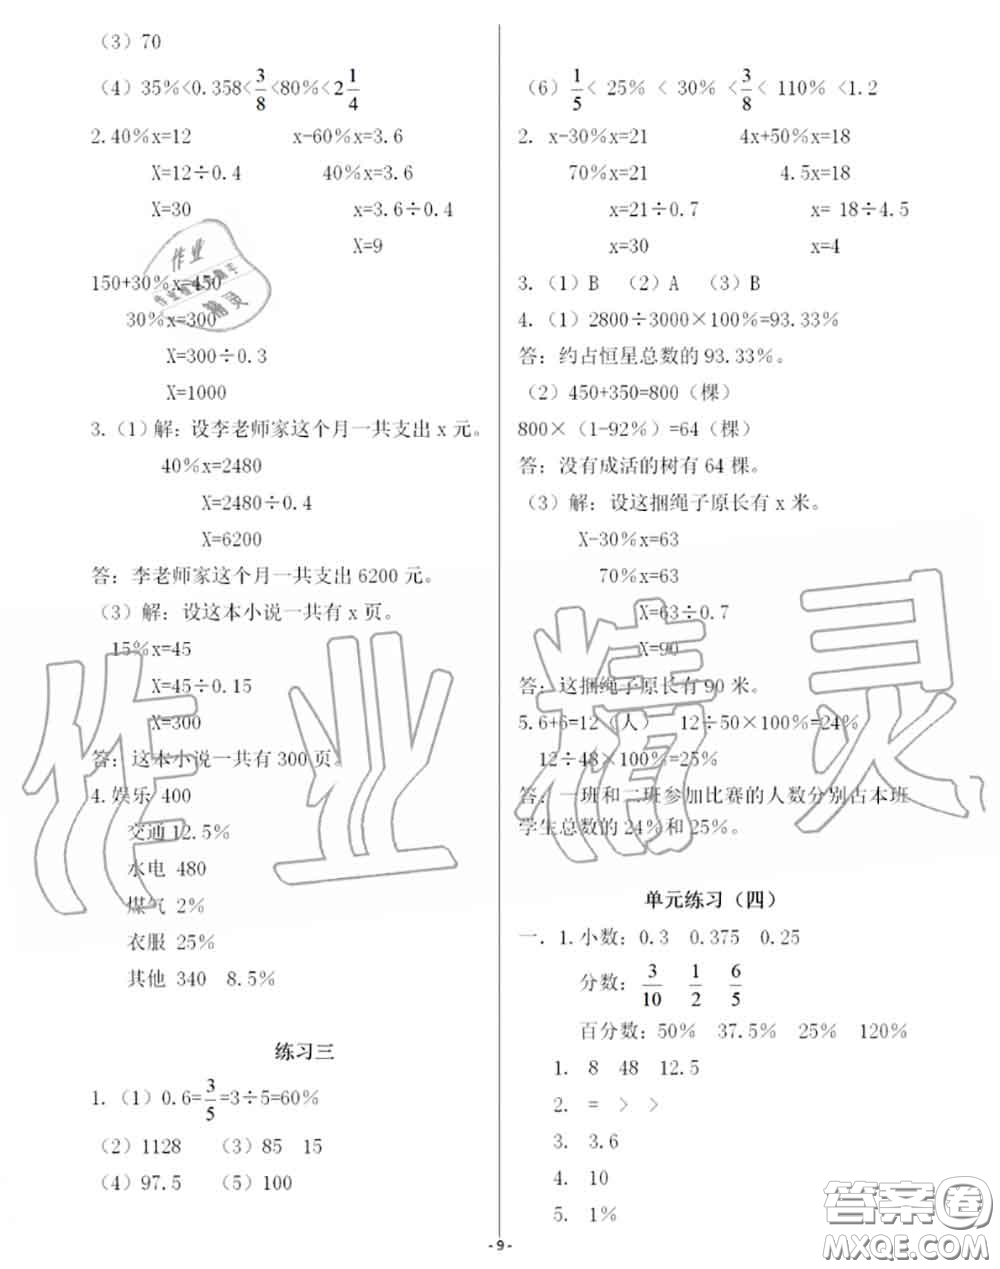 （3）70
（4）35%<0.358<3/8<80%<2 1/4
2.40%x=12 x-60%x=3.6
X=12÷0.4 40%x=3.6
X=30 x=3.6÷0.4
X=9
150+30%x=450
30%x=300
X=300÷0.3
X=1000
3.（1）解：设李老师家这个月一共支出 x 元。
40%x=2480
X=2480÷0.4
X=6200
答：李老师家这个月一共支出 6200 元。
（3）解：设这本小说一共有 x 页。
15%x=45
X=45÷0.15
X=300
答：这本小说一共有 300 页。
4.娱乐 400
交通 12.5%
水电 480
煤气 2%
衣服 25%
其他 340 8.5%
练习三
1.（1）0.6=3/5=3÷5=60%
（2）1128 （3）85 15
（4）97.5 （5）100
（6）1/5< 25% < 30% <3/8< 110% <1.2
2. x-30%x=21 4x+50%x=18
70%x=21 4.5x=18
x=21÷0.7 x= 18÷4.5
x=30 x=4
3.（1）B （2）A （3）B
4.（1）2800÷3000×100%=93.33%
答：约占恒星总数的 93.33%。
（2）450+350=800（棵）
800×（1-92%）=64（棵）
答：没有成活的树有 64 棵。
（3）解：设这捆绳子原长有 x 米。
X-30%x=63
70%x=63
X=63÷0.7
X=90
答：这捆绳子原长有 90 米。
5.6+6=12（人） 12÷50×100%=24%
12÷48×100%=25%
答：一班和二班参加比赛的人数分别占本班
学生总数的 24%和 25%。
单元练习（四）
一．1.小数：0.3 0.375 0.25
分数：3/10 1/2 6/5
百分数：50% 37.5% 25% 120%
1. 8 48 12.5
2. = > >
3. 3.6
4. 10
5. 1%
-9-
作业精灵
作业
精灵
答案卷
MXQE.COM